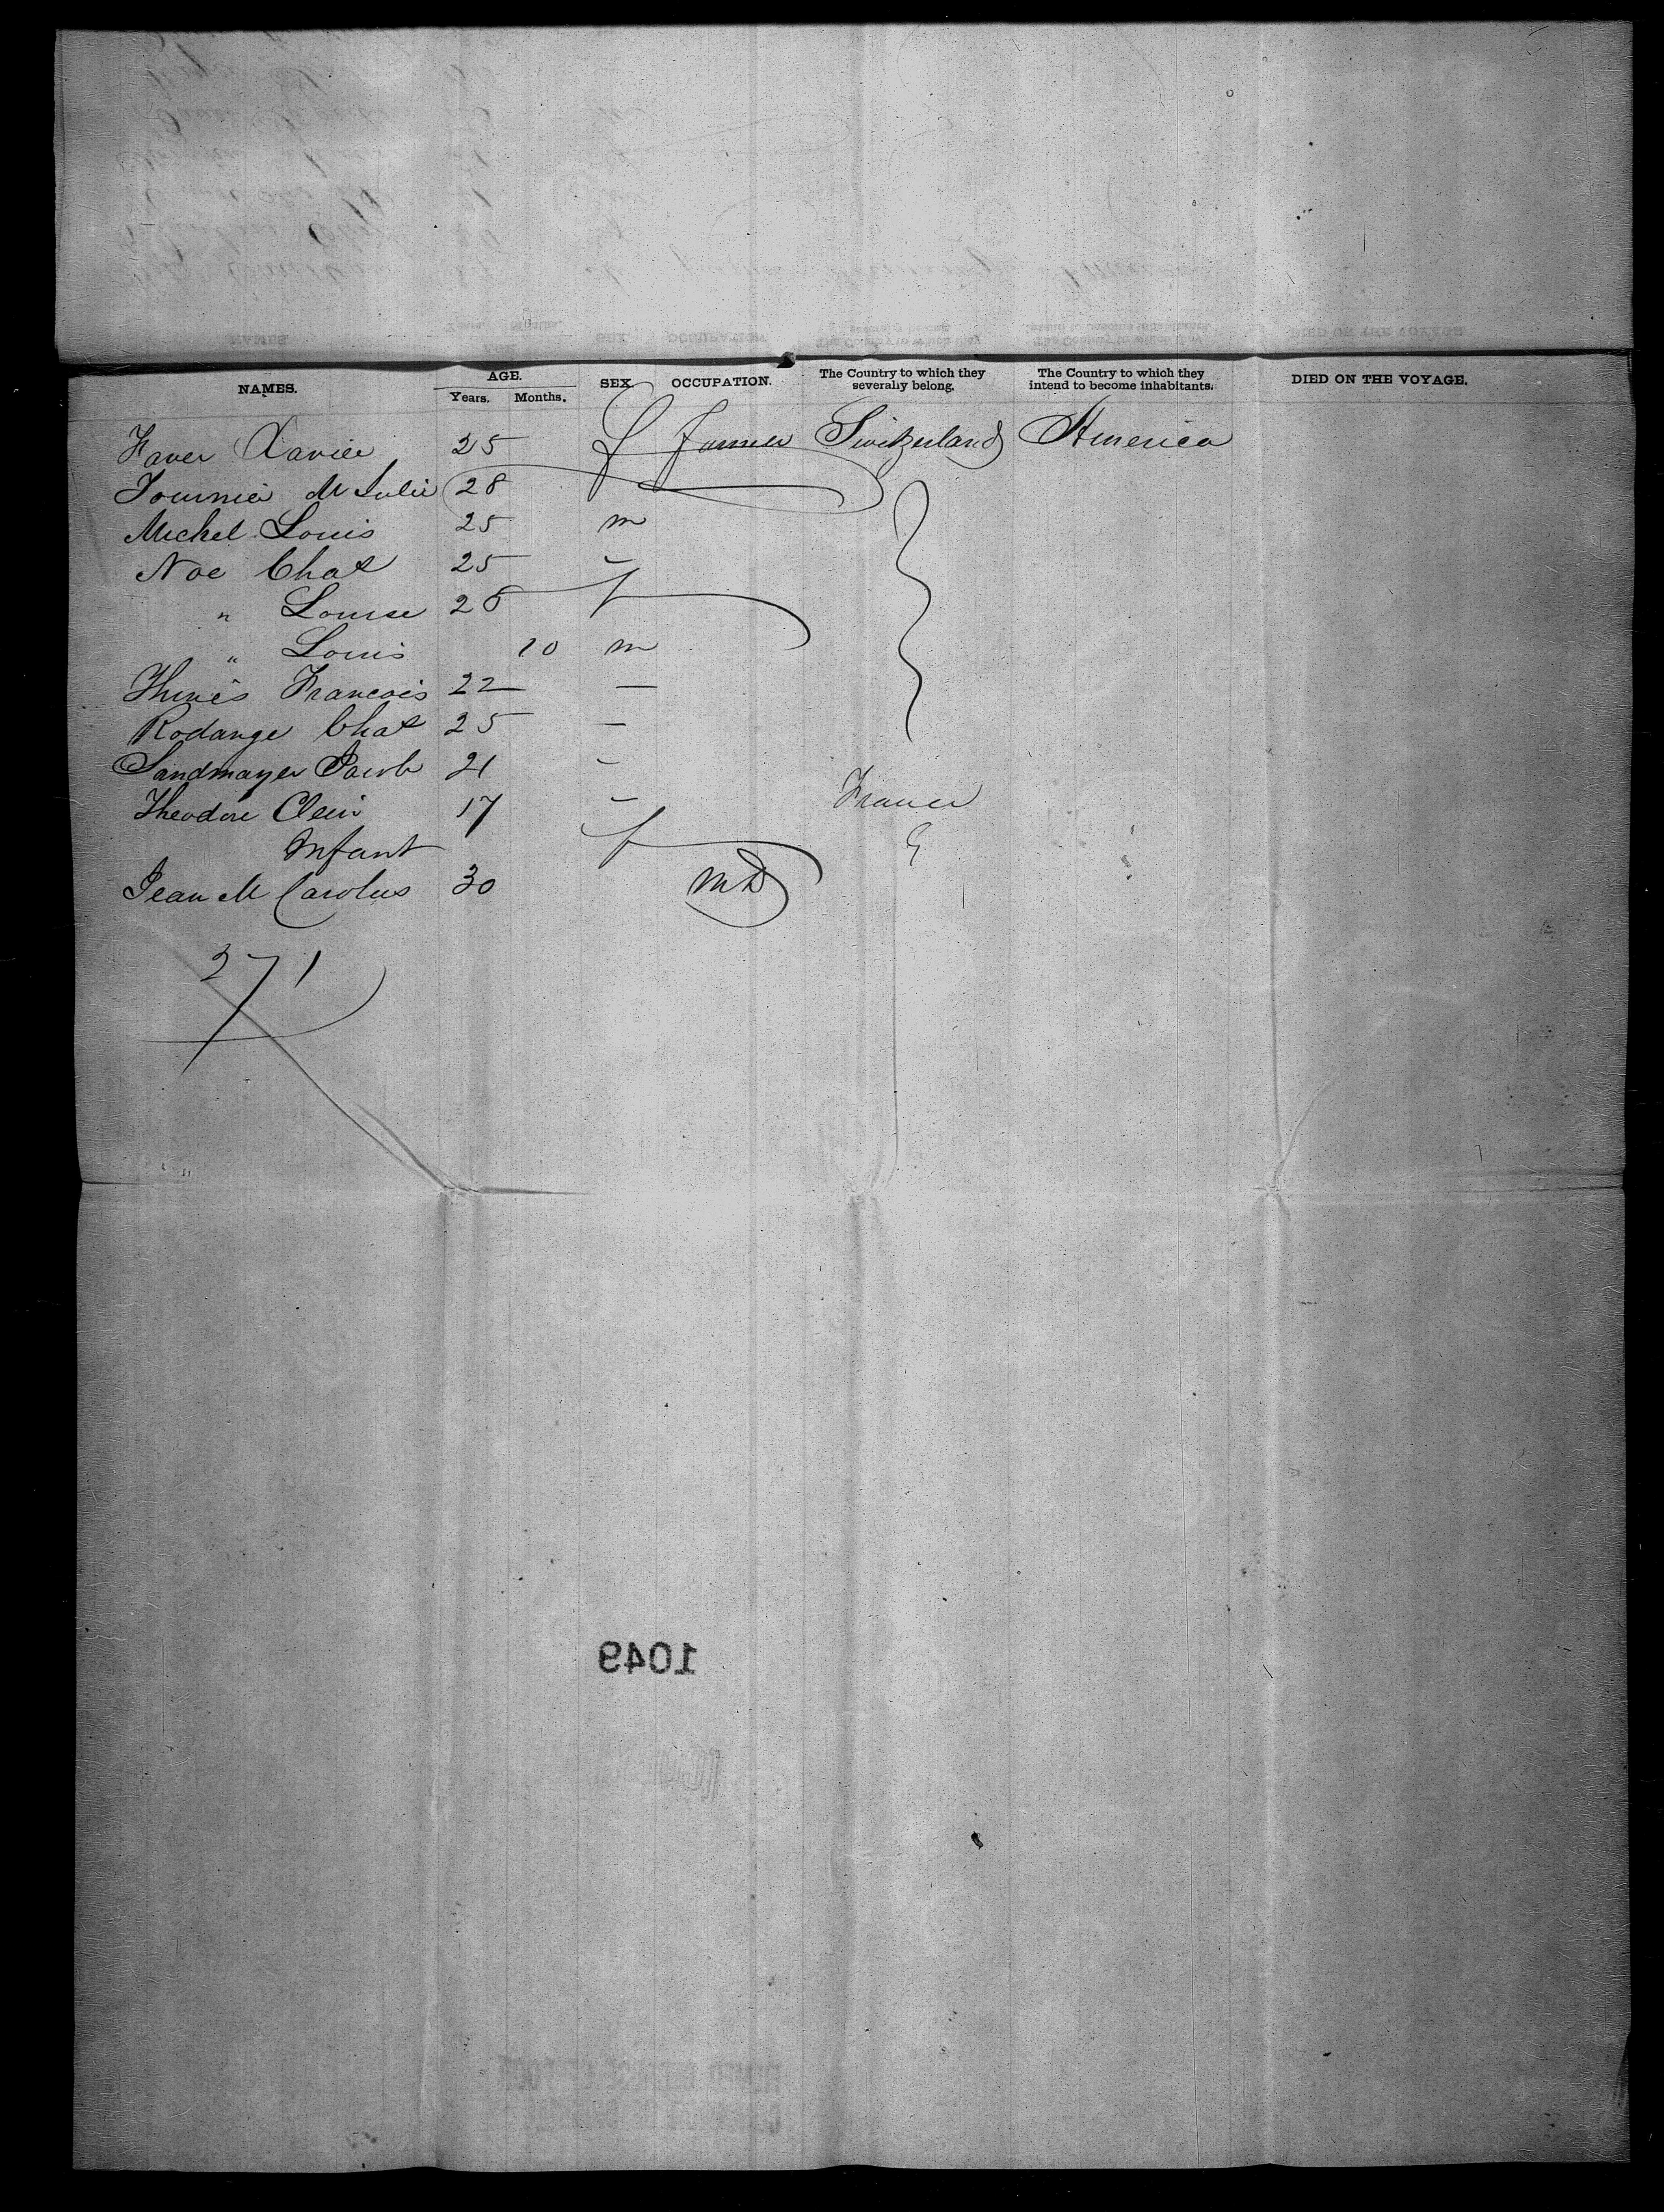 NAMES. AGE. Years. Months. SEX. OCCUPATION. The Country to which they severally belong. The Country to which they intend to become inhabitants. DIED ON THE VOYAGE.
Faver Xavier 25 Farmer Switzerland America
Fournier M Julie 28 f
Michel Louis 25 m
Noe Chas 25 -
" Louise 28 f
" Louis 10 m
Francois 22 —
Rodange Chas 25 —
Sandmayer Jacob 21 -
Theodore Clein 17 - France
Infant f
Jean M Carolus 30 MD
271
1049